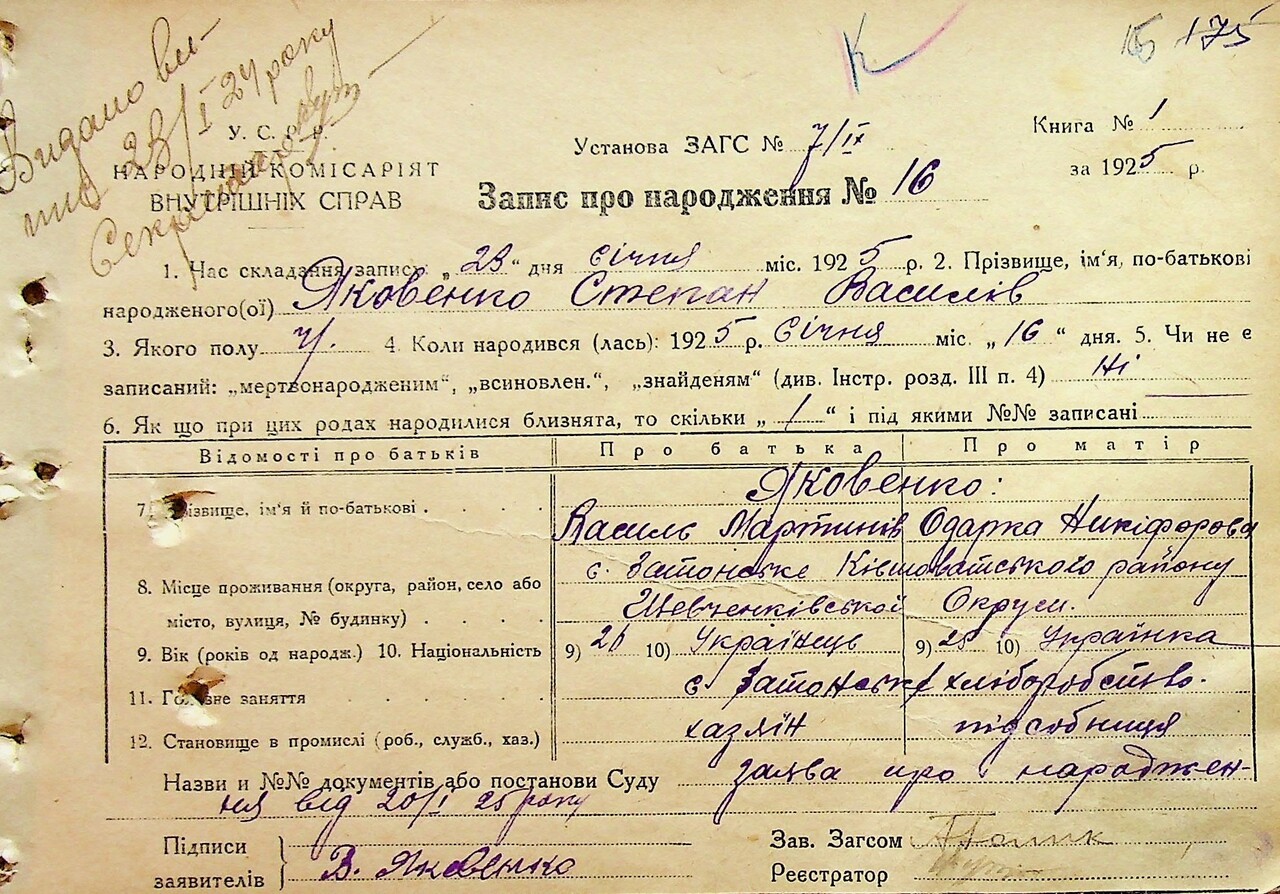 К 175
Видано ви-
пис 23/I 24 року
Секретар
У. С. Р. Р.
НАРОДНІЙ КОМІСАРІЯТ
ВНУТРІШНІХ СПРАВ
Установа ЗАГС № 7/ІХ
Книга № 1
за 1925 р.
Запис про народження № 16
1. Час складання запису: „23“ дня січня міс. 1925 р. 2. Прізвище, ім'я, по-батькові
народженого(ої) Яковенко Степан Василів
3. Якого полу ч. 4. Коли народився (лась): 1925 р. Січня міс. „16“ дня. 5. Чи не є
записаний: „мертвонародженим“, „всиновлен.“, „знайденям“ (див. Інстр. розд. III п. 4) Ні
6. Як що при цих родах народилися близнята, то скільки „1“ і під якими №№ записані
Відомості про батьків Про батька Про матір
Яковенко:
7. Прізвище, ім'я й по-батькові . . . . Василь Мартинів Одарка Никіфорова
8. Місце проживання (округа, район, село або с. Затонське Ківшоватського району
місто, вулиця, № будинку) . . . . Шевченківської Округи.
9. Вік (років од народж.) 10. Національність 9) 26 10) Українець 9) 25 10) Українка
11. Головне заняття . . . . с. Затонське хліборобство.
12. Становище в промислі (роб., служб., хаз.) хазяїн підсобниця
Назви и №№ документів або постанови Суду заява про народжен-
ня від 20/I 25 року
Підписи
заявителів В. Яковенко
Зав. Загсом
Реєстратор